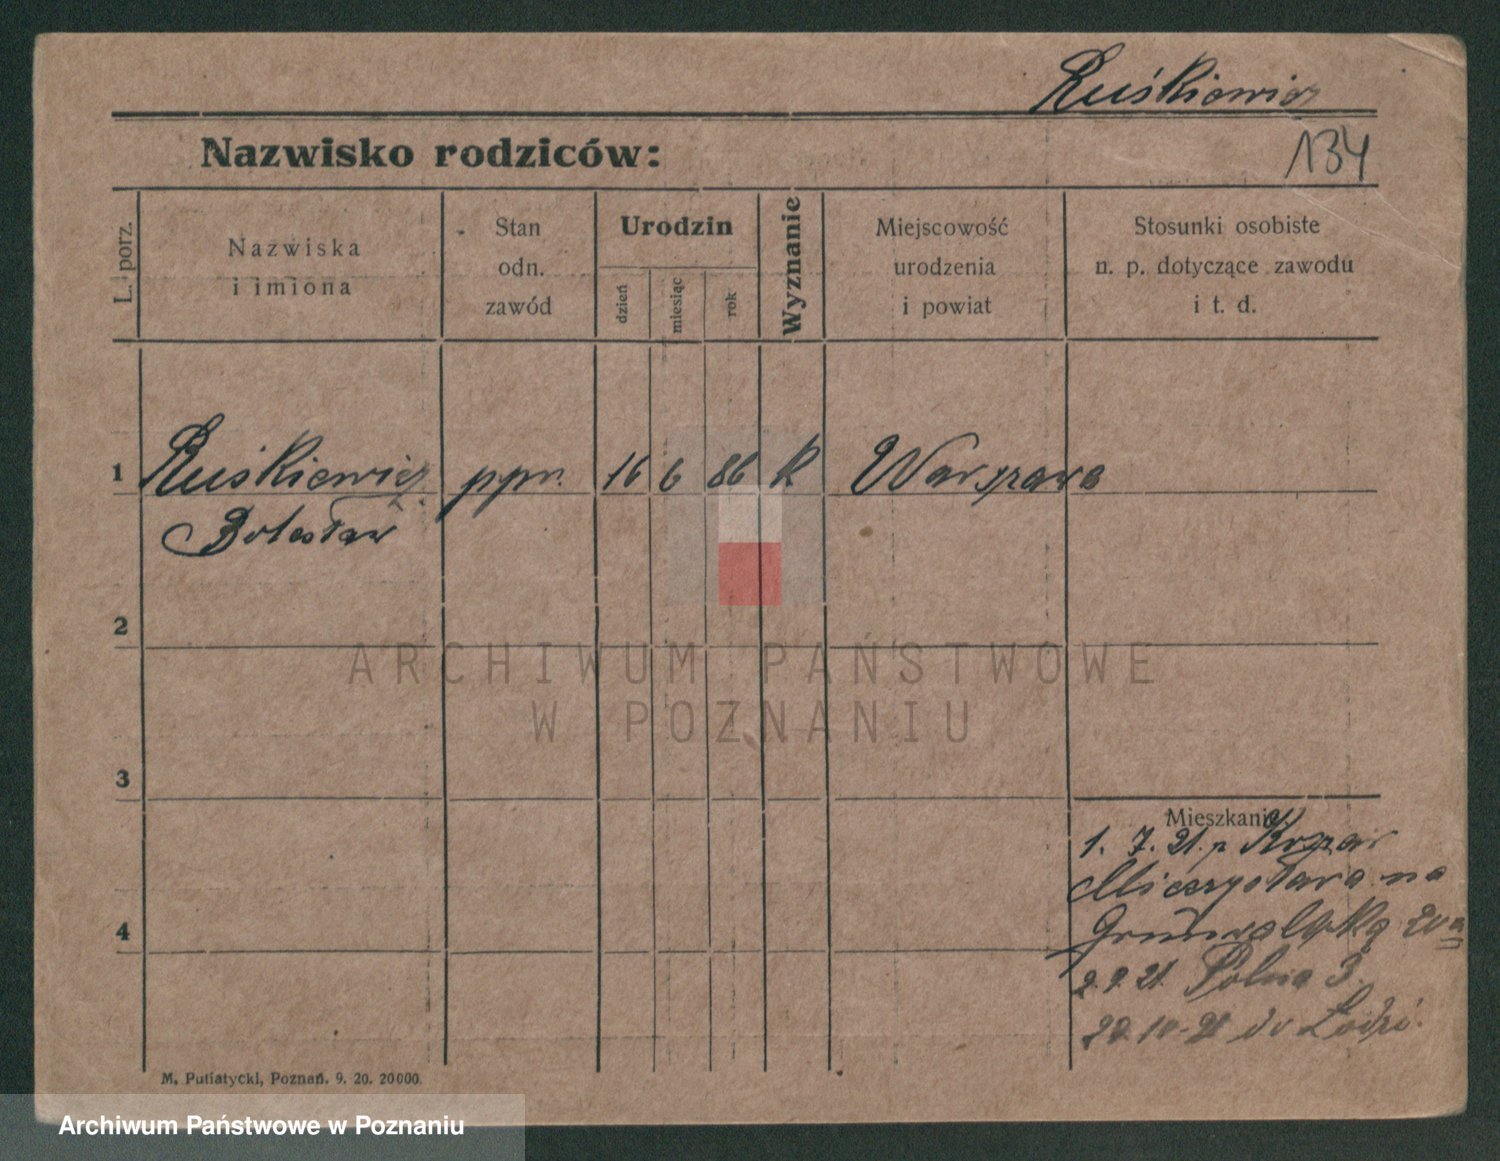 Ruśkiewicz
134
Nazwisko rodziców:
L. porz.
Nazwiska
i imiona
Stan
odn.
zawód
Urodzin
dzień
miesiąc
rok
Wyznanie
Miejscowość
urodzenia
i powiat
Stosunki osobiste
n. p. dotyczące zawodu
i t. d.
1 Ruśkiewicz ppr. 16 6 86 k Warszawa
Bolesław
2
ARCHIWUM PAŃSTWOWE
W POZNANIU
3
Mieszkanie
1. 7. 21. p
Mieczysława na
Grunwaldzką
2.9.21 Polna 3.
do Łodzi.
4
M. Putiatycki, Poznań. 9. 20. 20000.
Archiwum Państwowe w Poznaniu